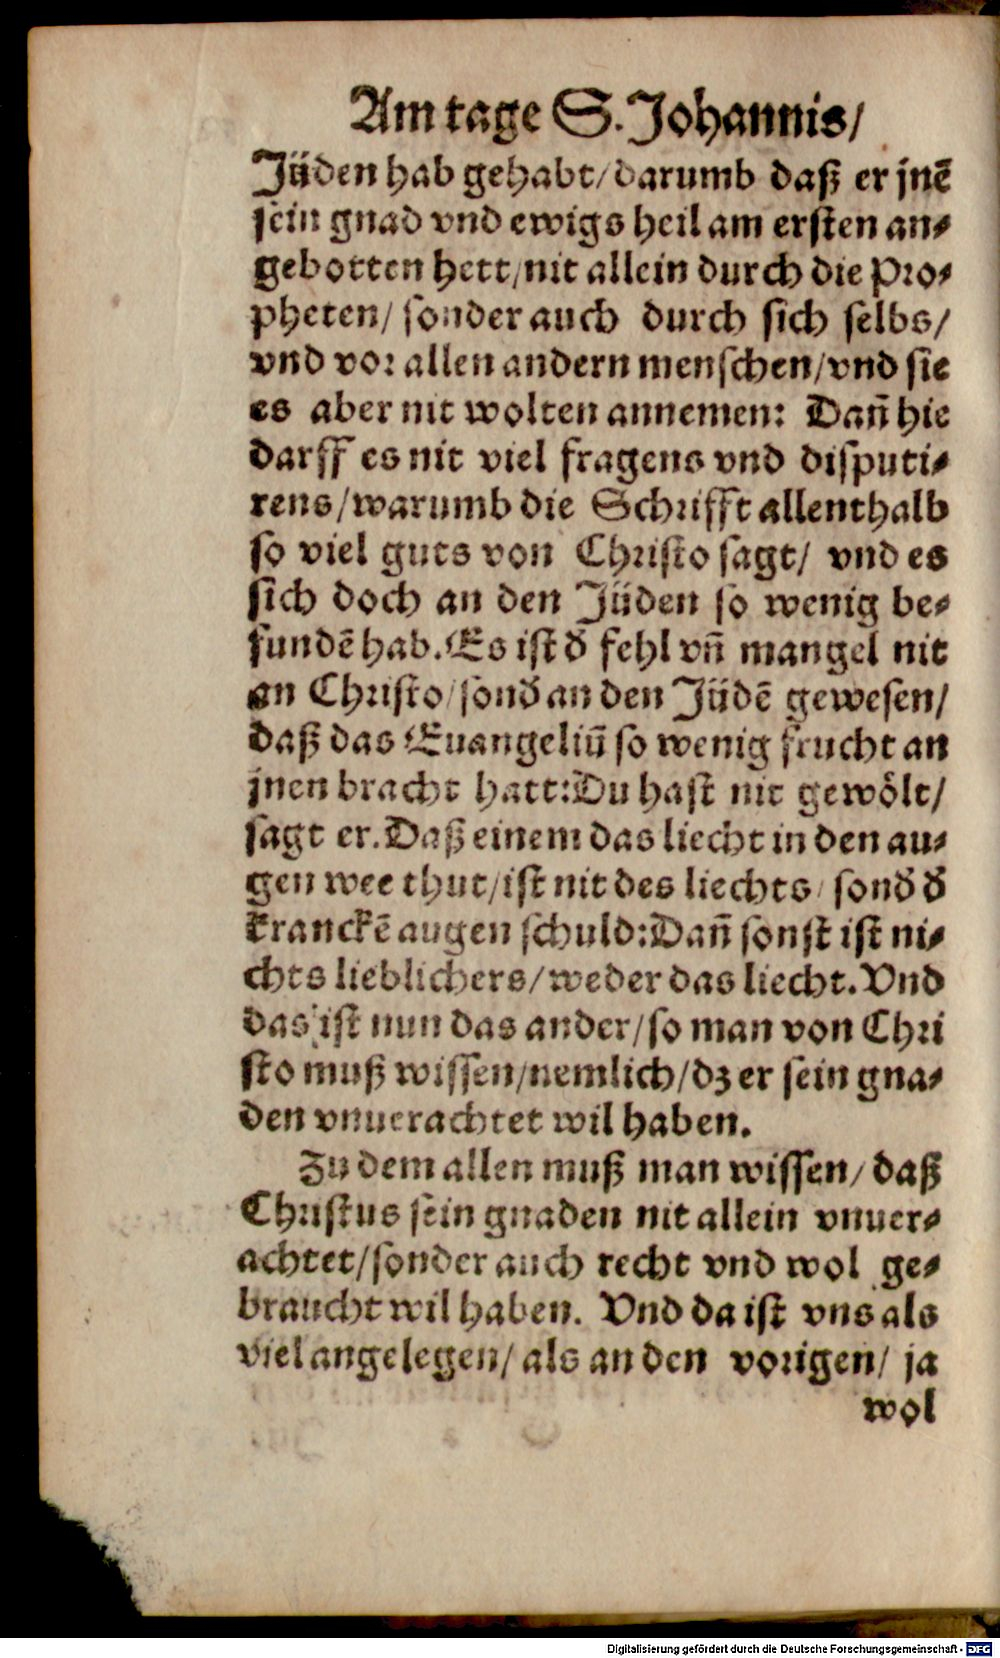 Am tage S. Johannis/
Jüden hab gehabt/ darumb daß er jnē
sein gnad vnd ewigs heil am ersten an⸗
gebotten hett/ nit allein durch die Pro⸗
pheten/ sonder auch durch sich selbs/
vnd vor allen andern menschen/ vnd sie
es aber nit wolten annemen: Dañ hie
darff es nit viel fragens vnd disputi⸗
rens/ warumb die Schrifft allenthalb
so viel guts von Christo sagt/ vnd es
sich doch an den Jüden so wenig be⸗
fundē hab. Es ist d̕ fehl vñ mangel nit
an Christo/ sond̕ an den Jüdē gewesen/
daß das Euangeliū so wenig frucht an
jnen bracht hatt: Du hast nit gewölt/
sagt er. Daß einem das liecht in den au⸗
gen wee thut/ ist nit des liechts/ sond̕ d̕
kranckē augen schuld: Dañ sonst ist ni⸗
chts lieblichers/ weder das liecht. Vnd
das ist nun das ander/ so man von Chri
sto muß wissen/ nemlich/ dz er sein gna⸗
den vnuerachtet wil haben.
Zu dem allen muß man wissen/ daß
Christus sein gnaden nit allein vnuer⸗
achtet/ sonder auch recht vnd wol ge⸗
braucht wil haben. Vnd da ist vns als
viel angelegen/ als an den vorigen/ ja
wol
Digitalisierung gefördert durch die Deutsche Forschungsgemeinschaft - DFG